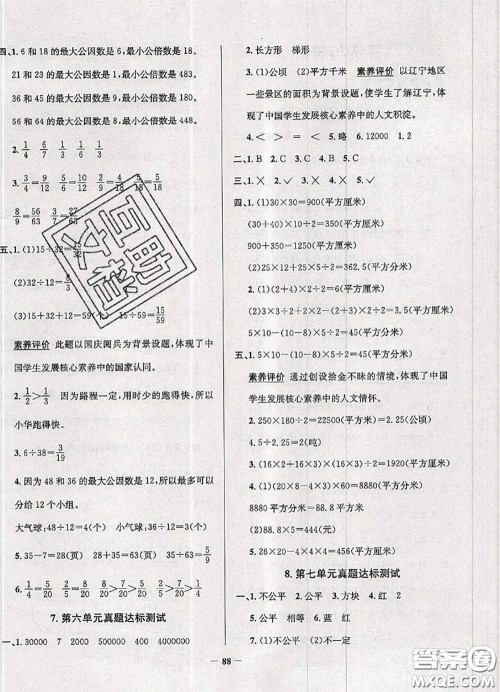 四、1. 6 和 18 的最大公因数是 6，最小公倍数是 18。
21 和 23 的最大公因数是 1，最小公倍数是 483。
36 和 45 的最大公因数是 9，最小公倍数是 180。
56 和 64 的最大公因数是 8，最小公倍数是 448。
2. 1/4 6/7 1/3
五、1. (1)15÷32=15/32
(2)32÷12=8/3
(3)15÷59=15/59
素养评价 此题以国庆阅兵为背景设题，体现了
中国学生发展核心素养中的国家认同。
2. 1/2>1/3 因为路程一定，用时少的跑得快，所以
小华跑得快。
3. 6÷38=3/19
4. 因为 48 和 36 的最大公因数是 12，所以可以
分给 12 个小组。
大气球：48÷12=4(个) 小气球：36÷12=3(个)
5. 35-7=28(页) 28-8=20(页) 20÷36=5/9
7. 第六单元真题达标测试
一、1. 30000 7 2000 500000 400 4000000
2. 长方形 梯形
3. (1)公顷 (2)平方千米 素养评价 以辽宁地区
一些景区的面积为背景设题，使学生了解辽宁，体
现了中国学生发展核心素养中的人文积淀。
4. < > = < 5. 略 6. 12000 1.2
二、1. B 2. C 3. C 4. B 5. A
三、1. × 2. √ 3. × 4. √ 5. ×
四、1. (1)30×30=900(平方厘米)
(2)(40+20)×10÷2=300(平方厘米)
900-300=600(平方厘米)
2. (1)25×16×5÷2=1000(平方厘米)
(2)12×25÷2=150(平方分米)
3. (1)32×15÷2=240(平方厘米)
(2)10×45×5÷2=1125(平方分米)
五、1. 5×10-5×10÷2=25(平方厘米)
素养评价 通过创设拾金不昧的情境，体现了中国
学生发展核心素养中的人文情怀。
2. 250×180÷2=22500(平方米)=2.25(公顷)
4.5÷2.25=2(吨)
3. (16×2+16×3)×(16×3)÷2=1920(平方厘米)
4. (1)(66+30)×(155+30)÷2=8880(平方厘米)
8880 平方厘米=88.8 平方分米
(2)88.8×5=444(平方分米)
5. 20×24-6×4=456(平方米)
8. 第七单元真题达标测试
一、1. 不公平 2. 公平 3. 方块 4. 红 2
5. 公平 相等 6. 蓝 红
7. (1)不公平 (2)不一定
88
答案圈
MXQE.COM